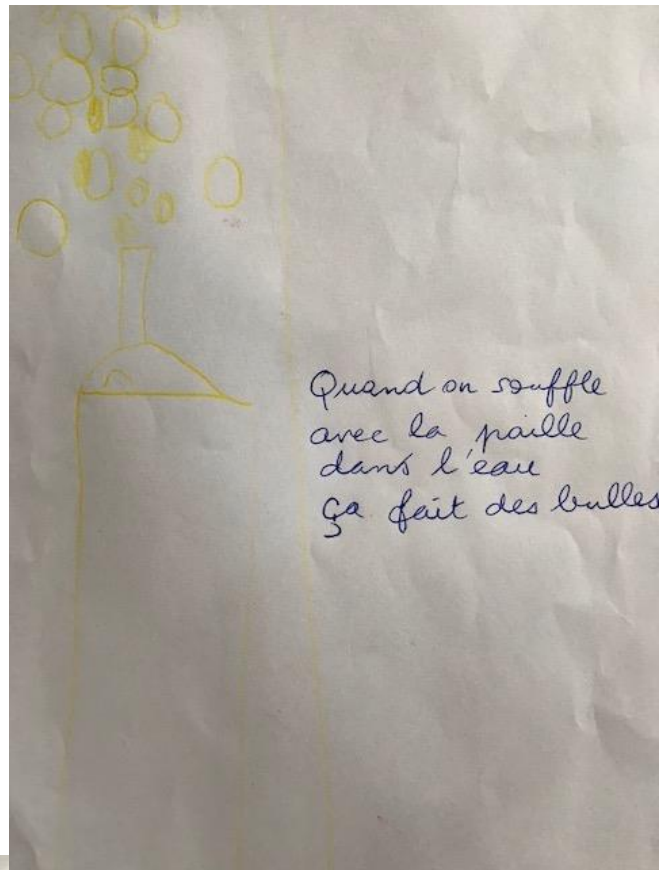 Quand on souffle
avec la paille
dans l'eau
ça fait des bulles